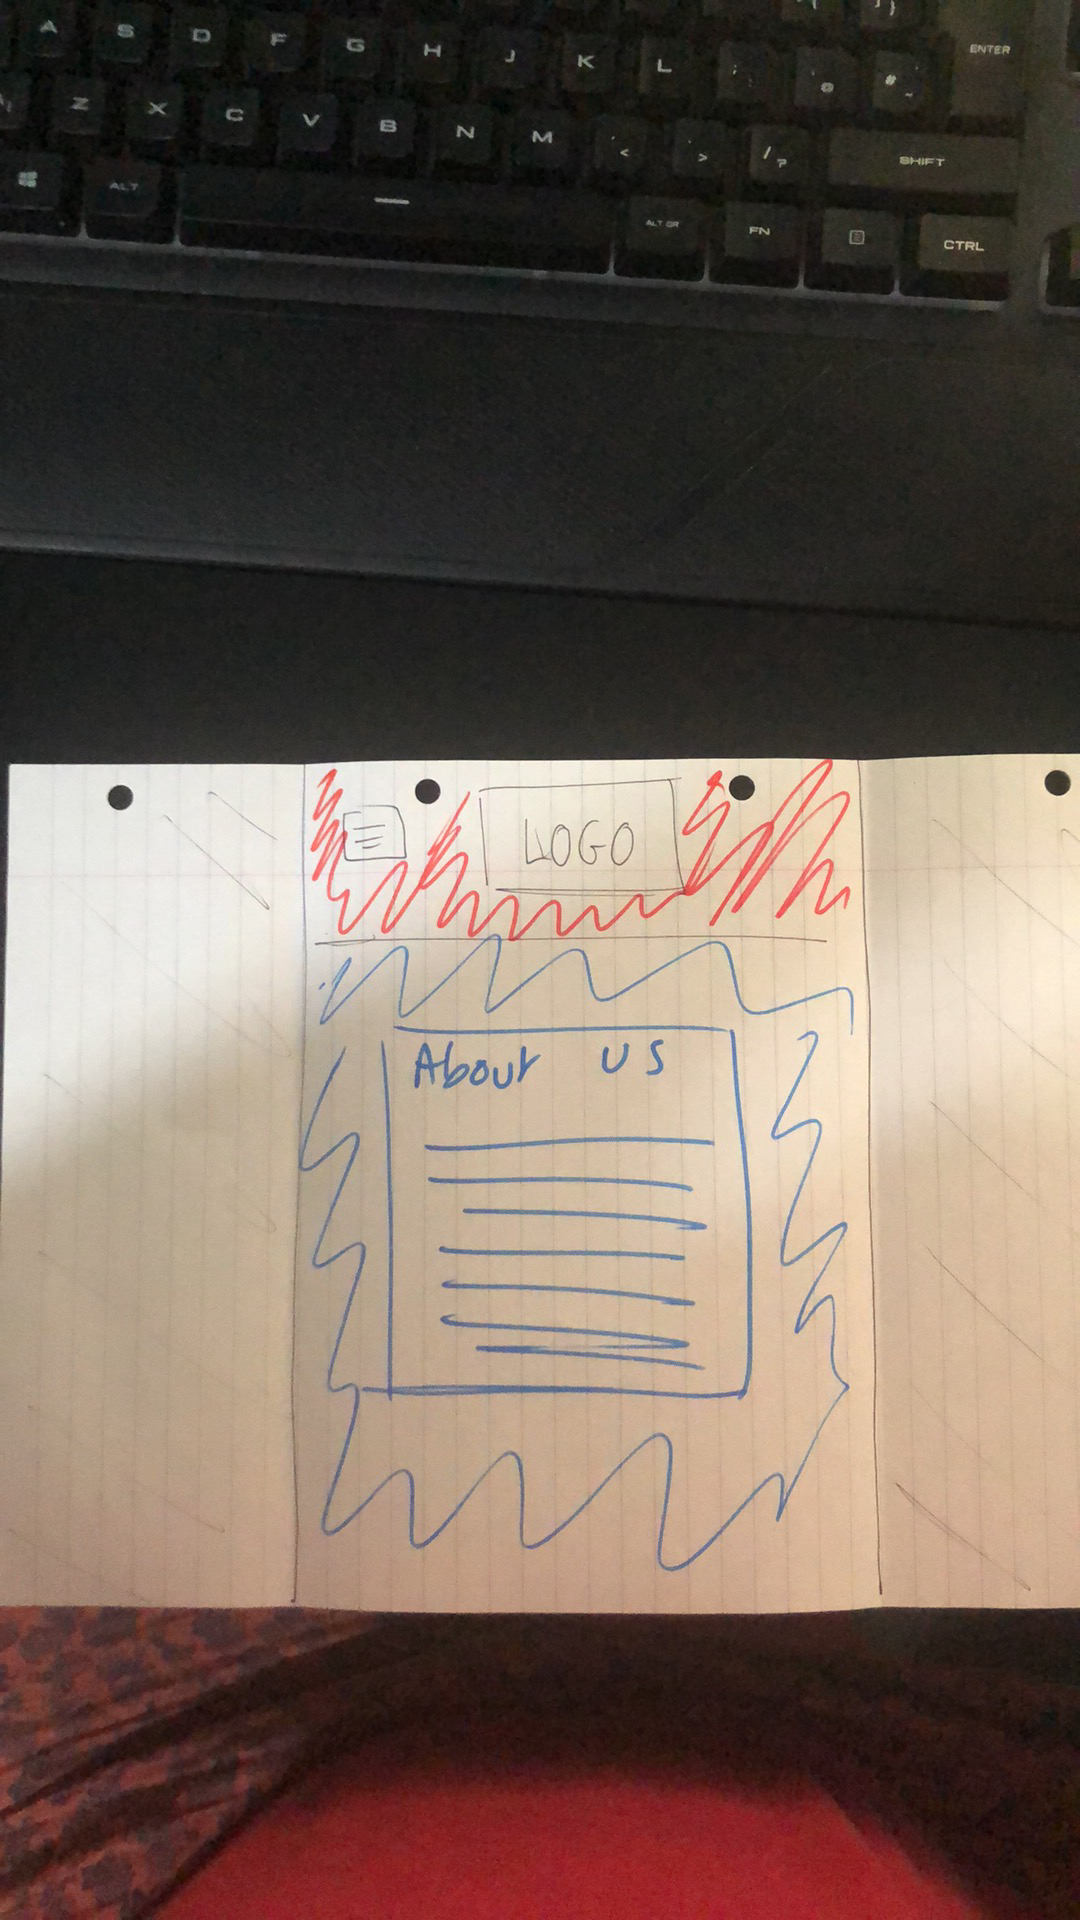 A S D F G H J K L ; @ # ~ ENTER
Z X C V B N M < > / ? SHIFT
ALT ALT GR FN CTRL
LOGO
About us